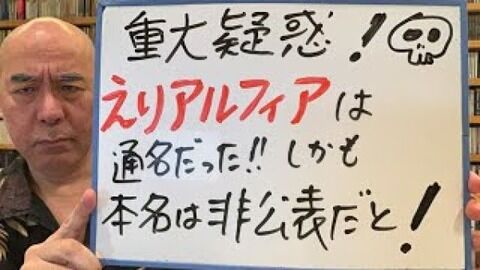 重大疑惑!
えりアルフィアは
通名だった!!しかも
本名は非公表だと!